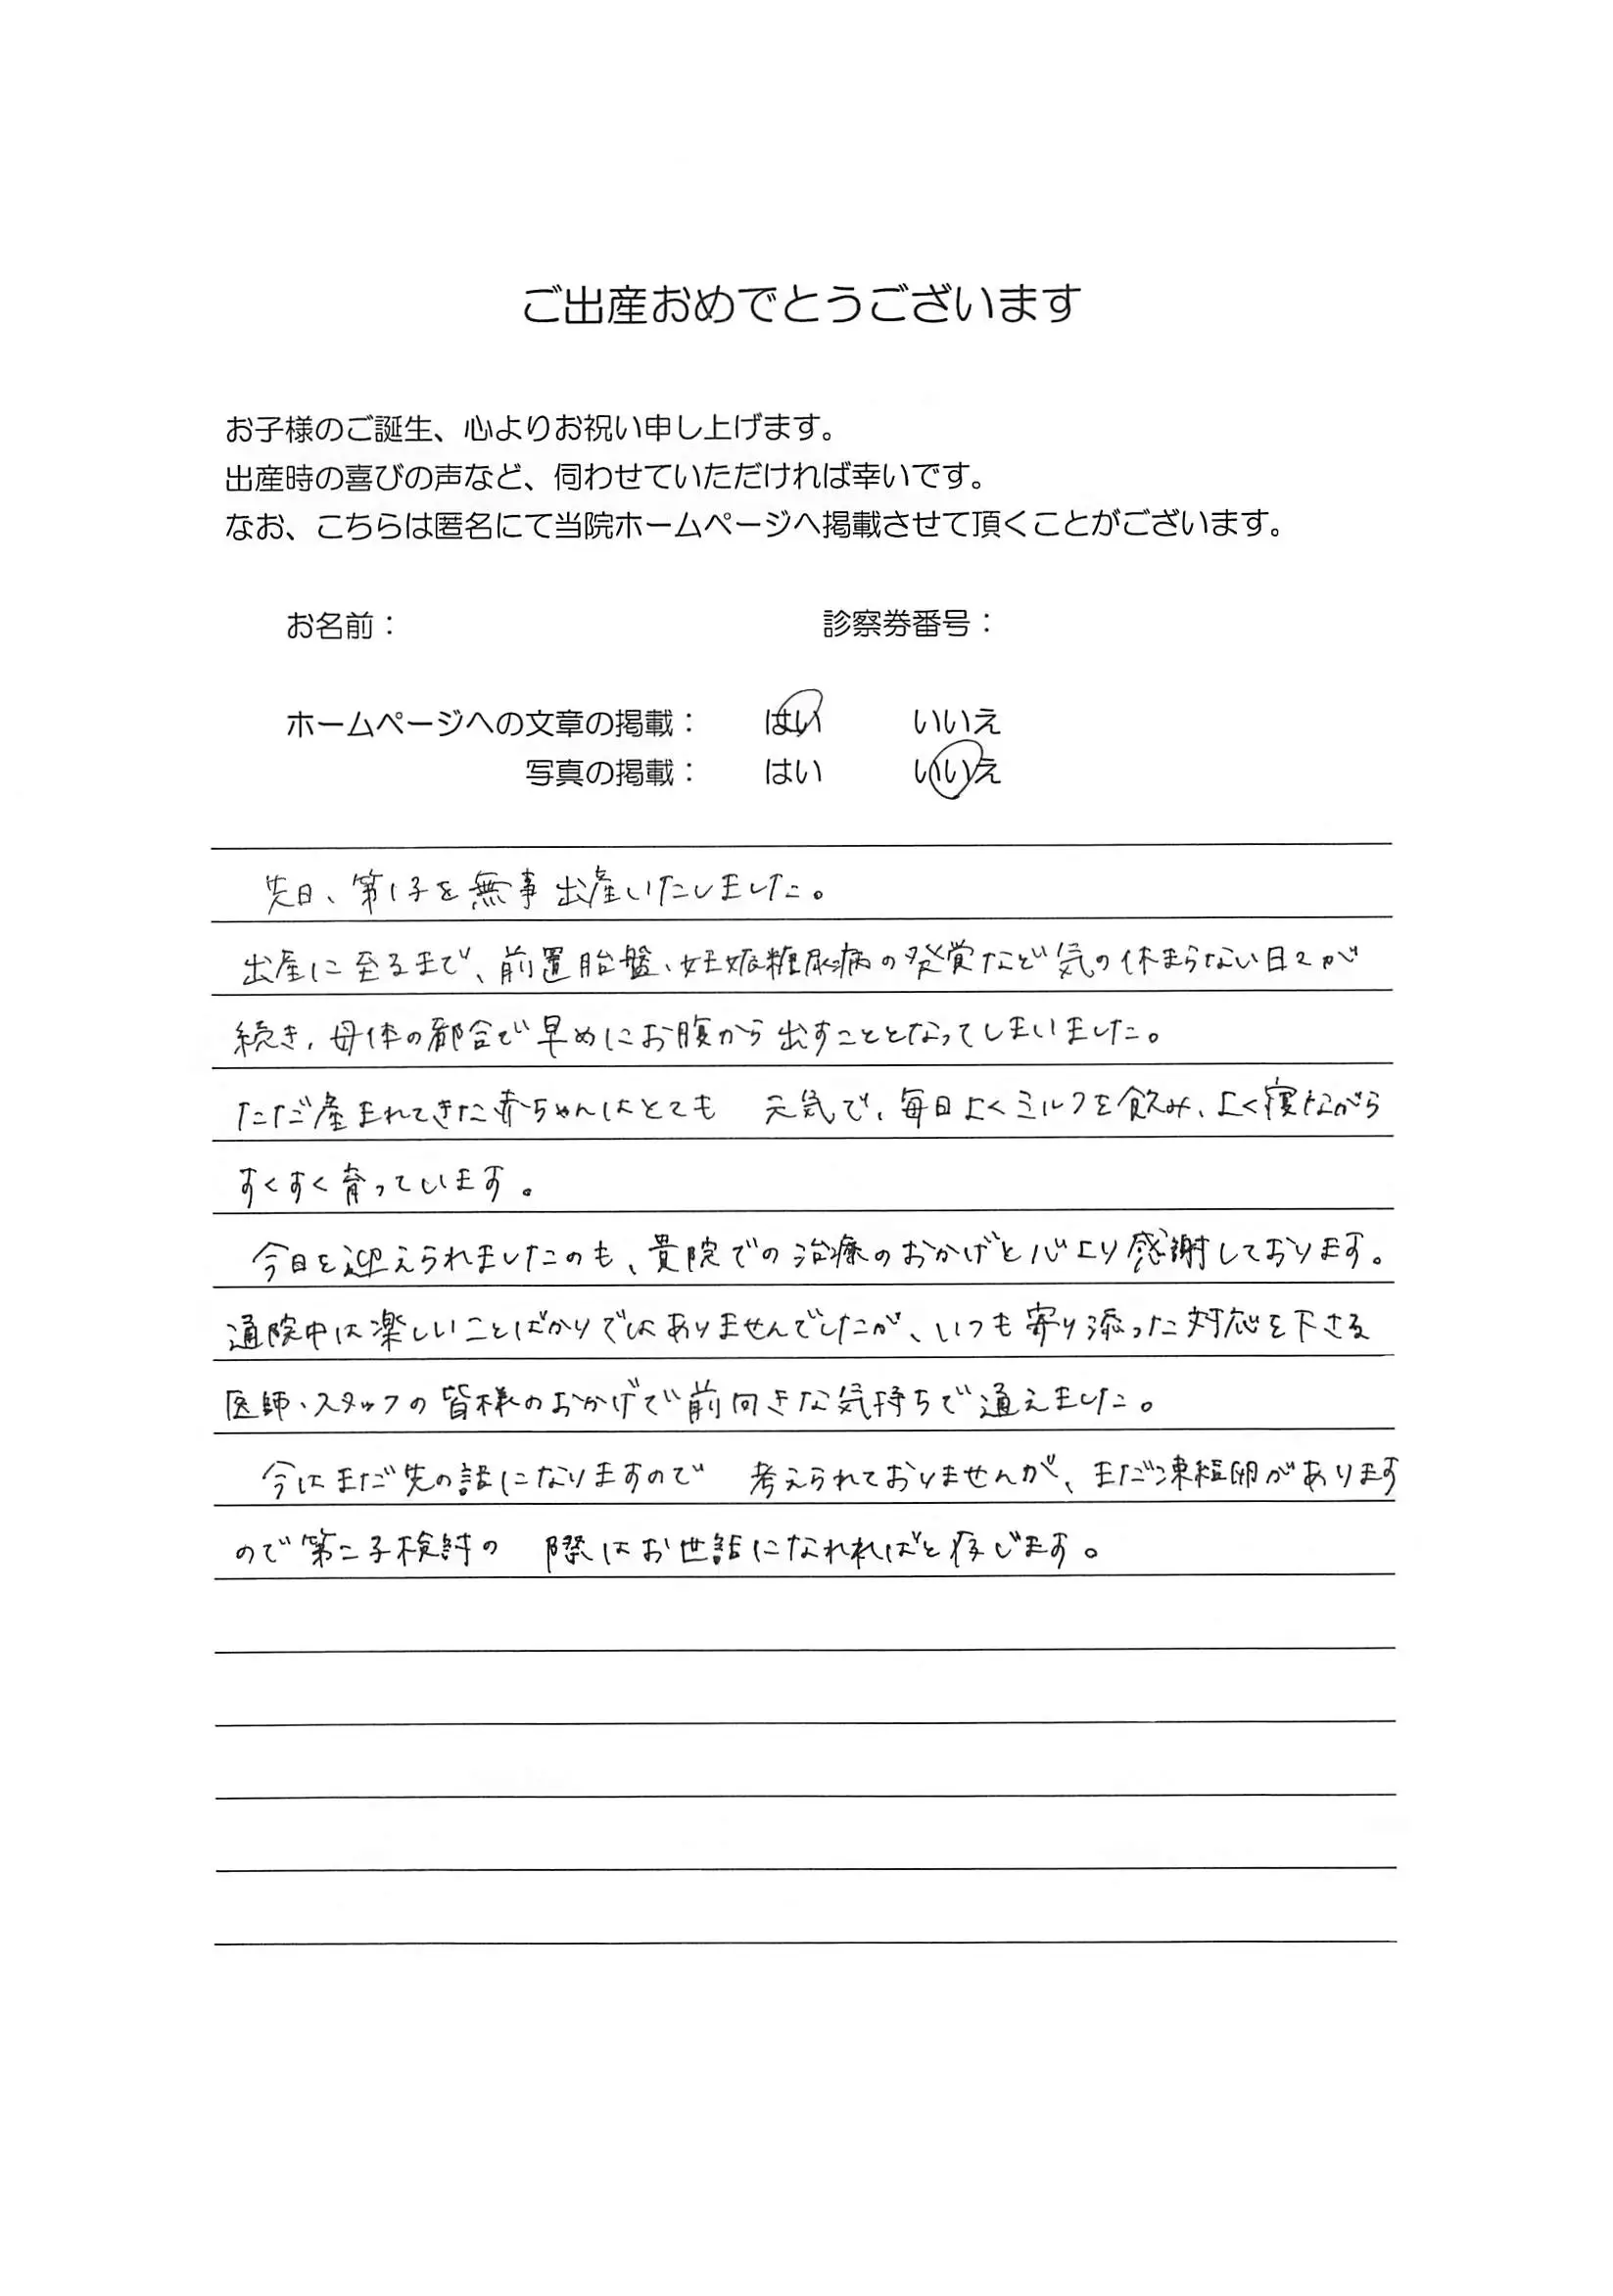 ご出産おめでとうございます
お子様のご誕生、心よりお祝い申し上げます。
出産時の喜びの声など、伺わせていただければ幸いです。
なお、こちらは匿名にて当院ホームページへ掲載させて頂くことがございます。
お名前： 診察券番号：
ホームページへの文章の掲載： はい いいえ
写真の掲載： はい いいえ
先日、第1子を無事出産いたしました。
出産に至るまで、前置胎盤、妊娠糖尿病の発覚など気の休まらない日々が
続き、母体の都合で早めにお腹から出すこととなってしまいました。
ただ産まれてきた赤ちゃんはとても 元気で、毎日よくミルクを飲み、よく寝ながら
すくすく育っています。
今日を迎えられましたのも、貴院での治療のおかげと心より感謝しております。
通院中は楽しいことばかりではありませんでしたが、いつも寄り添った対応を下さる
医師・スタッフの皆様のおかげで前向きな気持ちで通えました。
今はまだ先の話になりますので 考えられておりませんが、まだ凍結卵があります
ので第二子検討の 際はお世話になれればと存じます。